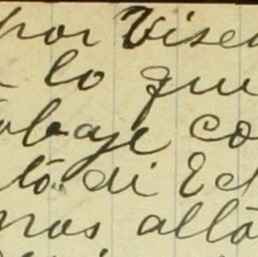 por Vise
lo que
abaje co
tó di Ed
nos alto